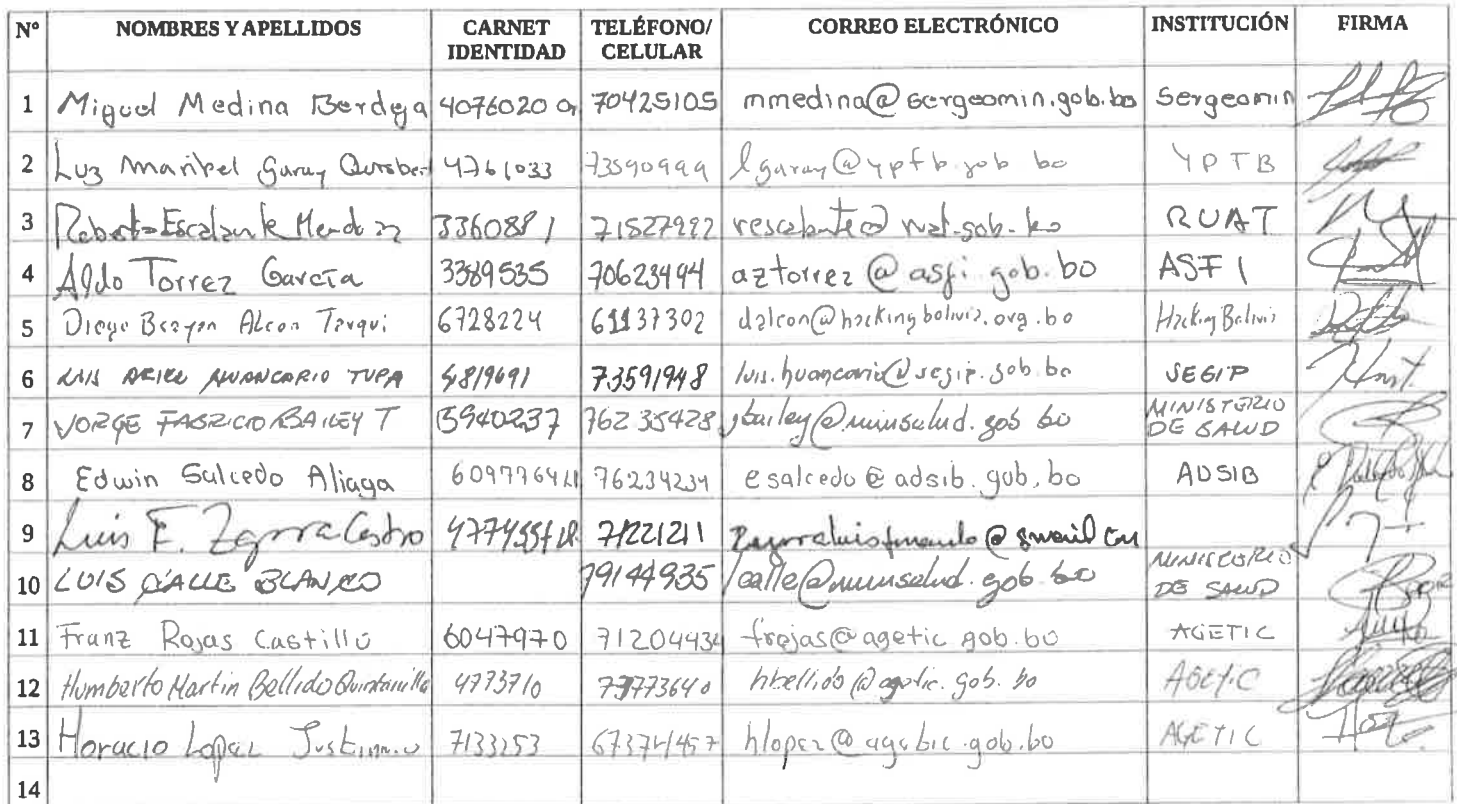 Nº NOMBRES Y APELLIDOS CARNET IDENTIDAD TELÉFONO/ CELULAR CORREO ELECTRÓNICO INSTITUCIÓN FIRMA
1 Miguel Medina Berdeja 4076020 Or 70425105 mmedina@sergeomin.gob.bo Sergeomin
2 Luz Maribel Garay 4761033 73590999 lgaray@ypfb.gob bo YPFB
3 Roberto Escalante Mendoza 3360881 71527992 rescalante@ruat.gob.bo RUAT
4 Aldo Torrez García 3389535 70623494 aztorrez@asfi.gob.bo ASFI
5 Diego Brayan Alcon Tarqui 6728224 61137302 dalcon@hackingbolivia.org.bo Hacking Bolivia
6 LUIS ARIEL HUANCARIO TUPA 4819691 73591948 luis.huancario@segip.gob.bo SEGIP
7 JORGE FABRICIO BAILEY T 5940237 76235428 jbailey@minsalud.gob bo MINISTERIO DE SALUD
8 Edwin Salcedo Aliaga 6097764 76234234 esalcedo@adsib.gob.bo ADSIB
9 Luis F. Zegarra Castro 71221211
10 LUIS CALLE BLANCO 79144935 lcalle@minsalud.gob bo MINISTERIO DE SALUD
11 Franz Rojas Castillo 6047970 71204434 frojas@agetic gob.bo AGETIC
12 Humberto Martin Bellido Quintanilla 4773710 hbellido@agetic.gob.bo AGETIC
13 Horacio Lopez Justiniano 7133253 67374457 hlopez@agetic.gob.bo AGETIC
14